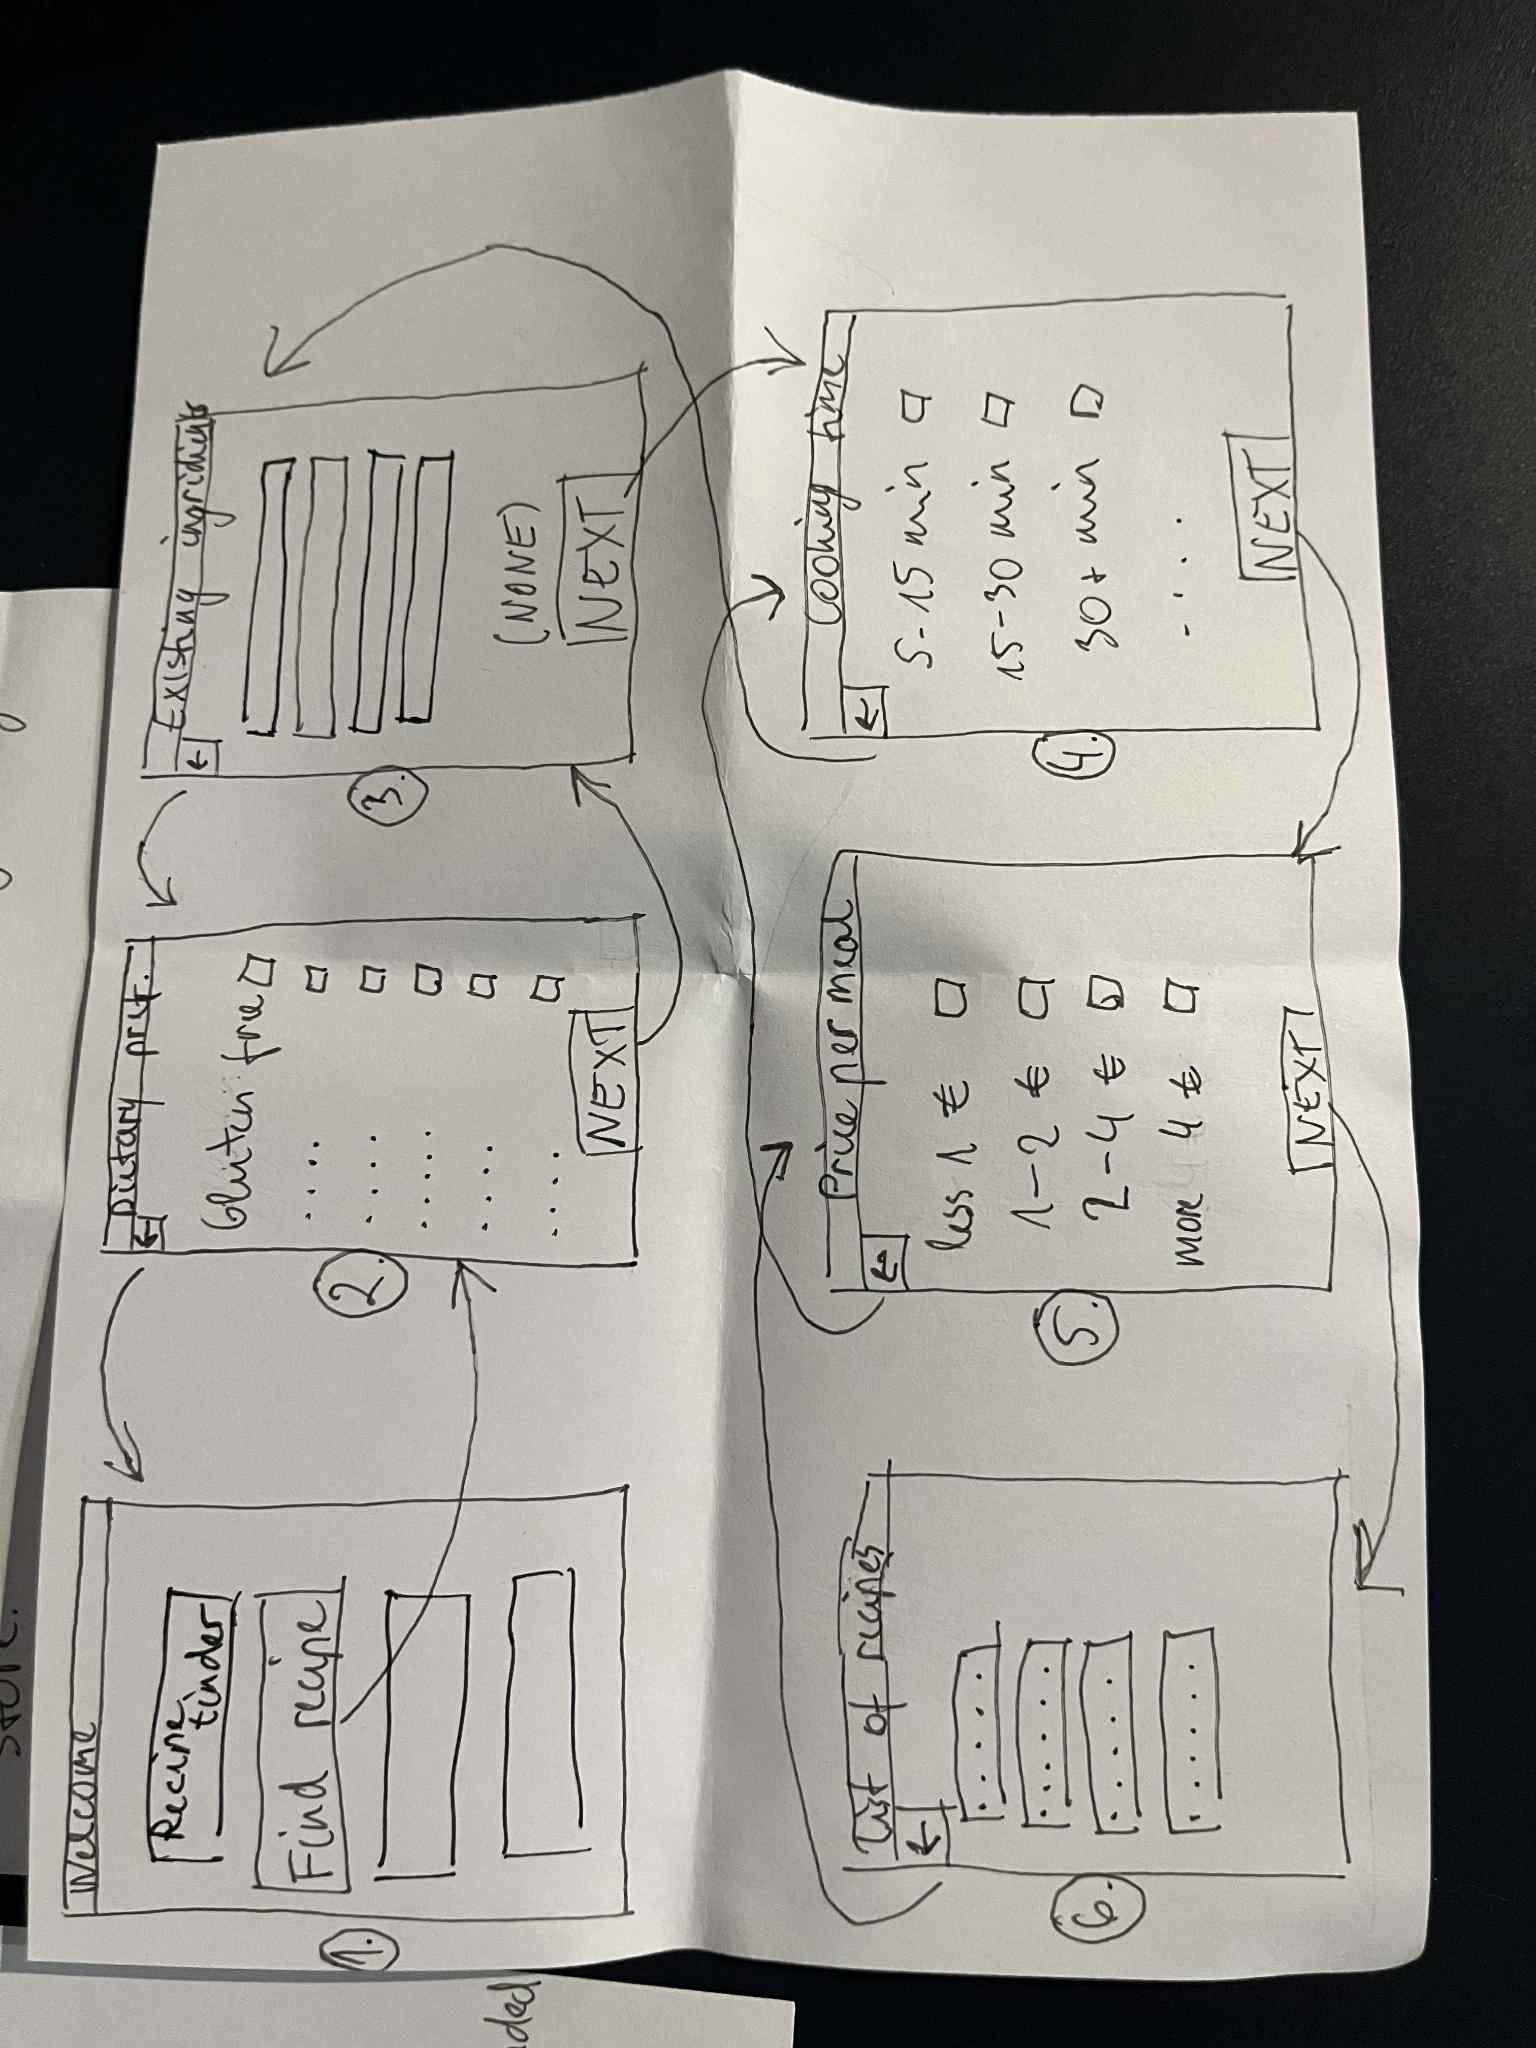 1.
Welcome
Recipe
tinder
Find recipe
2.
←
Dietary pref.
Gluten free
NEXT
3.
←
Existing ingridients
(NONE)
NEXT
4.
←
Cooking time
5-15 min
15-30 min
30+ min
NEXT
5.
←
Price per meal
less 1 €
1-2 €
2-4 €
more 4 €
NEXT
6.
←
List of recipes